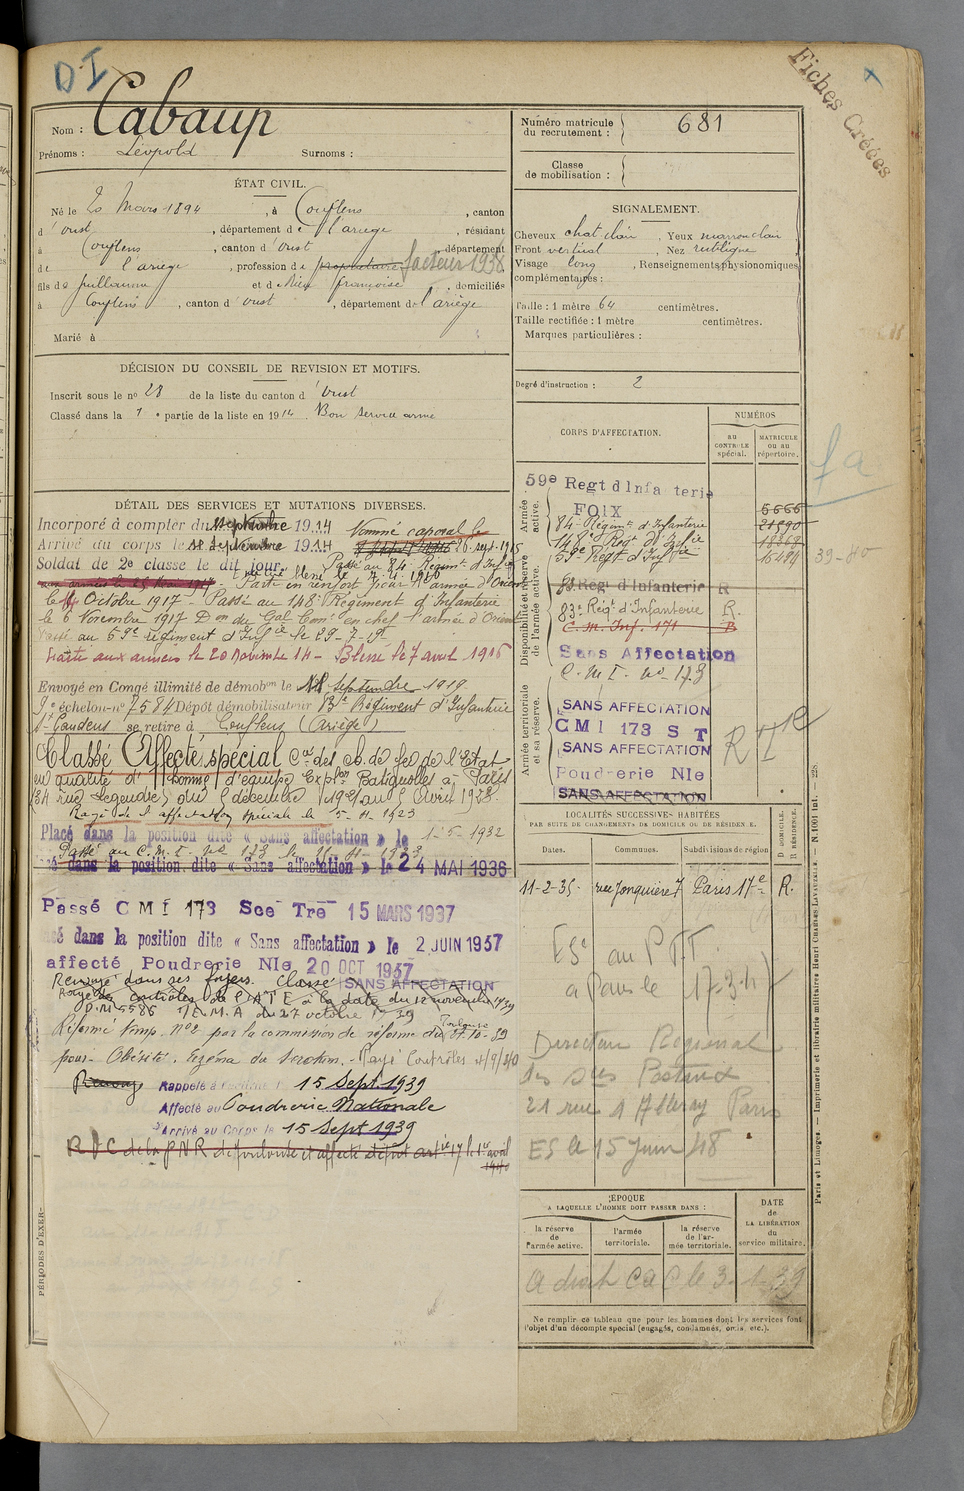 D.I
Fiches Créées
Nom : Cabaup
Prénoms : Léopold Surnoms :
Numéro matricule du recrutement : 681
Classe de mobilisation :
ÉTAT CIVIL.
Né le 20 Mars 1894, à Couflens, canton
d'Oust, département de l'ariège, résidant
à Couflens, canton d'Oust, département
de l'ariège, profession de propriétaire facteur 1938
fils de Guillaume et de Françoise, domiciliés
à Couflens, canton d'Oust, département de l'ariège
Marié à
SIGNALEMENT.
Cheveux chat clair, Yeux marron clair
Front vertical, Nez rectiligne
Visage long, Renseignements physionomiques
complémentaires :
Taille : 1 mètre 64 centimètres.
Taille rectifiée : 1 mètre centimètres.
Marques particulières :
Degré d'instruction : 2
DÉCISION DU CONSEIL DE REVISION ET MOTIFS.
Inscrit sous le n° 28 de la liste du canton d'Oust
Classé dans la 1e partie de la liste en 1914. Bon service armé
DÉTAIL DES SERVICES ET MUTATIONS DIVERSES.
Incorporé à compter du septembre 1914
Arrivé au corps le septembre 1914
Nommé caporal le
26 sept 1915
Soldat de 2e classe le dit jour.
Passé au 84 Régimt d'Infie
Parti en renfort pour l'armée d'Orient
le Octobre 1917 - Passé au 148e Régiment d'Infanterie
le 6 Novembre 1917 Don du Gal Comt en chef l'armée d'Orient
Passé au 59e régiment d'Infie le 29-7-19
Parti aux armées le 20 novembre 14 - Blessé le 7 avril 1915
Envoyé en Congé illimité de démobon le Septembre 1919
9e échelon n° 7584 Dépôt démobilisateur 83e Régiment d'Infanterie
St Gaudens se retire à Couflens (Ariège)
Classé Affecté spécial Cie des ch. de fer de l'Etat
en qualité d'homme d'équipe Exploon Batignolles à Paris
(34 rue Legendre) du 5 décembre 1921 au 5 Avril 1928.
Rayé de l'affectation spéciale le 5-11-1923
Placé dans la position dite « Sans affectation » le 1-5-1932
Passé au C.M.I. n° 173 le
dans la position dite « Sans affectation » le 24 MAI 1936
Passé CMI 173 Sce Tre 15 MARS 1937
dans la position dite « Sans affectation » le 2 JUIN 1937
affecté Poudrerie Nle 20 OCT 1937
Renvoyé dans ses foyers. Classé SANS AFFECTATION
Rayé des contrôles de l'A T E à la date du 12 novembre 1939
D.M. 5586 1/E.M.A du 27 octobre 1939
Réformé temp. n° 2 par la commission de réforme de Toulouse
pour - Obésité. Eczéma du scrotum. - Rayé Contrôles
Rappelé à l'activité le 15 Sept 1939
Affecté au Poudrerie Nationale
Arrivé au Corps le 15 Sept 1939
RDC de la PNR de Toulouse et affecté dépôt artie 17 le 1er avril
1940
PÉRIODES D'EXER-
CORPS D'AFFECTATION.
NUMÉROS
au CONTROLE spécial.
MATRICULE ou au répertoire.
Armée active.
59e Regt d'Infanterie
FOIX
84e Régimt d'Infanterie
148e Regt d'Infie
59e Regt d'Infie
5666
16494
39-40
Disponibilité et réserve de l'armée active.
83 Reg d'Infanterie R
83e Regt d'Infanterie R.
C.M. Inf. 171 R
Sans Affectation
C.M.I. n° 173
Armée territoriale et sa réserve.
SANS AFFECTATION
CMI 173 S T
SANS AFFECTATION
Poudrerie Nle
SANS AFFECTATION
LOCALITÉS SUCCESSIVES HABITÉES
PAR SUITE DE CHANGEMENTS DE DOMICILE OU DE RÉSIDENCE.
Dates. Communes. Subdivisions de région D. DOMICILE. R. RÉSIDENCE.
11-2-35. rue Jonquière 7 Paris 17e R.
ES au PTT.
a Paris le 17-3-41
Directeur Régional
des Sces Postaux
21 rue d'Alleray Paris
ES le 15 Juin 48
ÉPOQUE
A LAQUELLE L'HOMME DOIT PASSER DANS :
la réserve de l'armée active.
l'armée territoriale.
la réserve de l'armée territoriale.
DATE de LA LIBÉRATION du service militaire.
a droit CaC le 3-1-39
Ne remplir ce tableau que pour les hommes dont les services font
l'objet d'un décompte spécial (engagés, condamnés, omis, etc.).
Paris et Limoges. — Imprimerie et librairie militaires Henri CHARLES-LAVAUZELLE. — N. 1001 int. — 228.